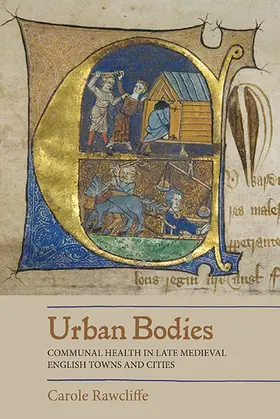 Urban Bodies
COMMUNAL HEALTH IN LATE MEDIEVAL
ENGLISH TOWNS AND CITIES
Carole Rawcliffe